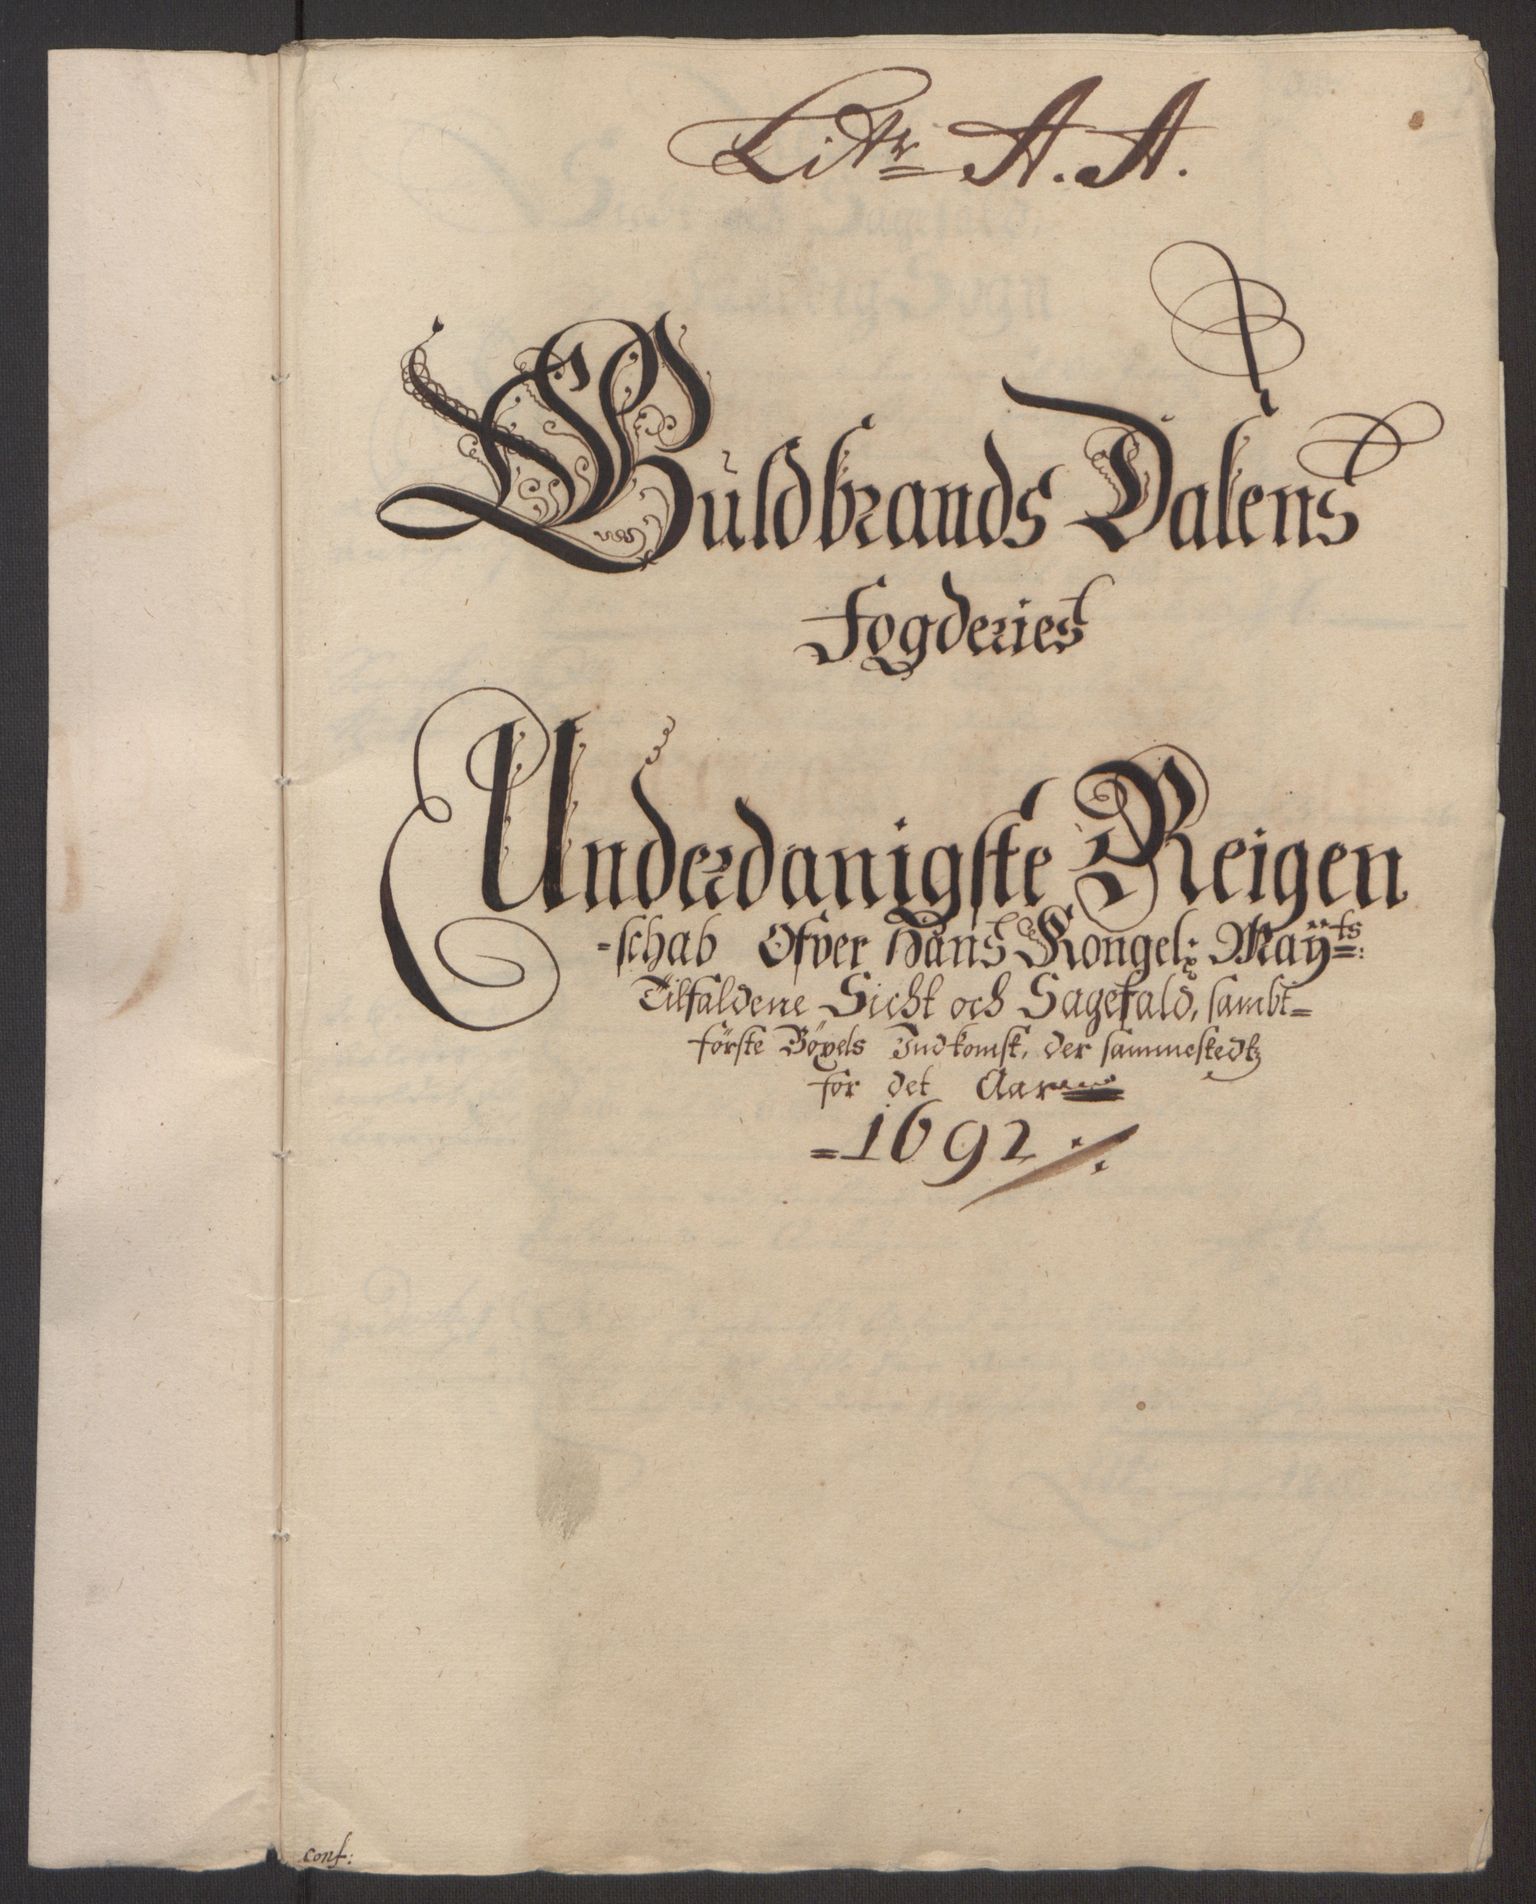 Litr A. A.
Guldbrands Dalens
Fogderies
Underdanigste Reigen
-schab Ofver Hans Kongel: Maÿts:
Tilfaldene Sicht och Sagefald, sambt=
förste Böxels Indkomst, der sammestedtz
for det Aar
=1692
conf: